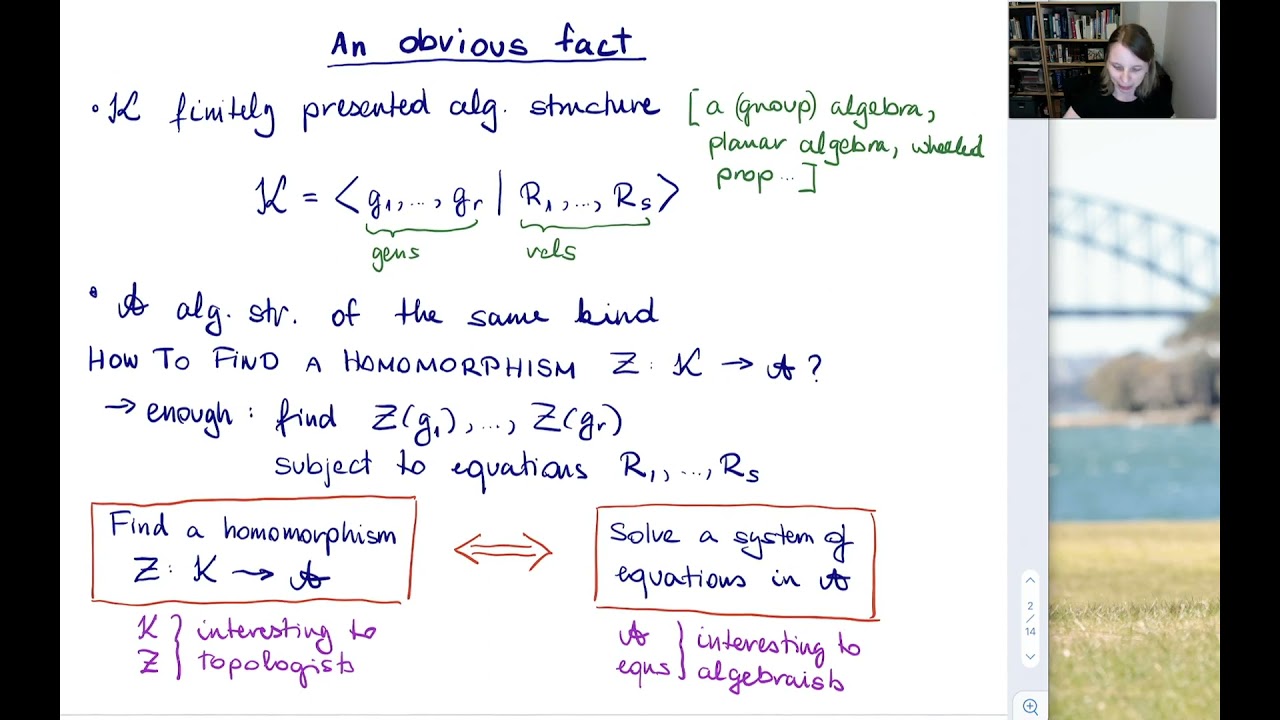 An obvious fact
• K finitely presented alg. structure [a (group) algebra,
planar algebra, wheeled
prop ...]
K = <g₁,..., gᵣ | R₁,..., Rₛ>
gens rels
• A alg. str. of the same kind
HOW TO FIND A HOMOMORPHISM Z: K → A?
→ enough: find Z(g₁),..., Z(gᵣ)
subject to equations R₁,..., Rₛ
Find a homomorphism
Z: K → A
⟺
Solve a system of
equations in A
K } interesting to
Z } topologists
A } interesting to
eqns } algebraists
2
/
14